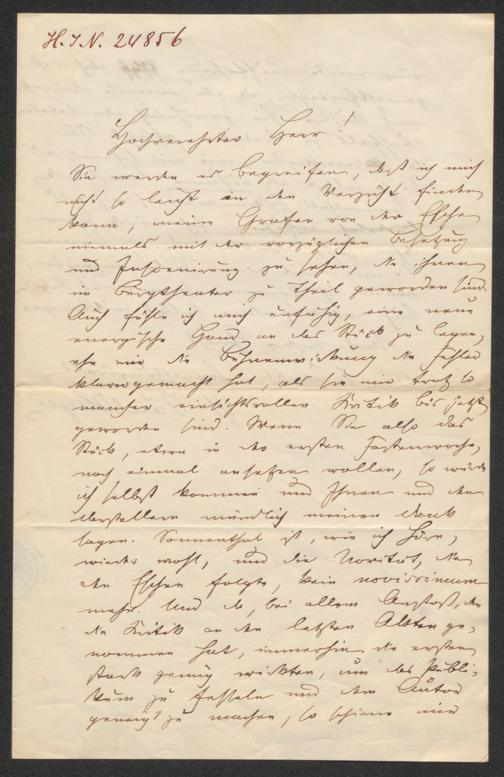 H.I.N. 24856
Hochverehrter Herr!
Sie werden es begreifen, daß ich mich
nicht so leicht in den Verzicht finden
kann, meine Grafen von der Esche
niemals mit der vorzüglichen Besetzung
und Inscenierung zu sehen, die ihnen
im Burgtheater zu Theil geworden sind.
Auch fühle ich mich unfähig, eine neue
energische Hand an das Stück zu legen,
ehe mir die Bühnenwirkung die Fehler
klarer gemacht hat, als sie mir trotz so
mancher einsichtsvollen Kritik bis jetzt
geworden sind. Wenn Sie also das
Stück, etwa in der ersten Fastenwoche,
noch einmal ansetzen wollen, so würde
ich selbst kommen und Ihnen und den
Darstellern mündlich meinen Dank
sagen. Sonnenthal ist, wie ich höre,
wieder wohl, und die Novität, die
den Eschen folgte, kein novissimum
mehr. Und da, bei allem Anstoß, den
die Kritik an den letzten Akten ge-
nommen hat, immerhin die ersten
stark genug wirkten, um das Publi-
kum zu fesseln und dem Autor
geneigt zu machen, so schiene mir